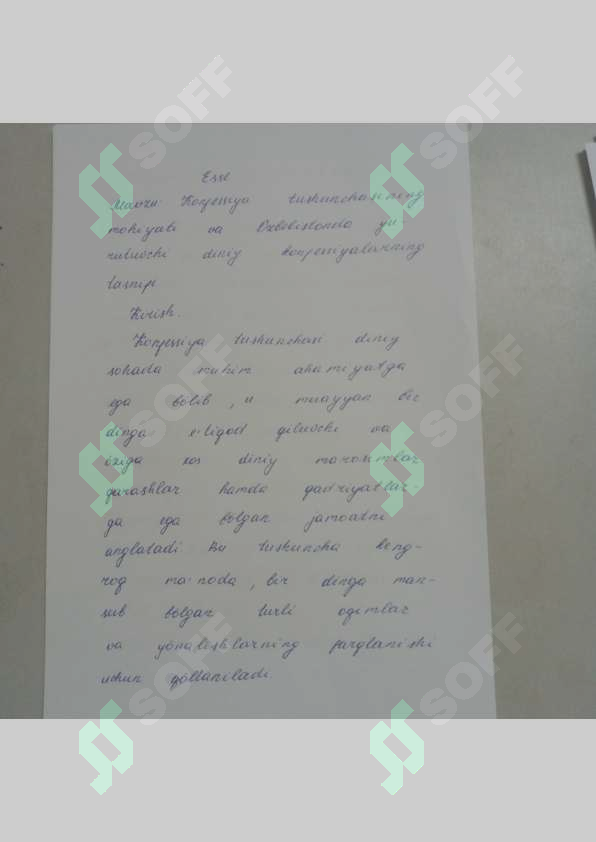 Esse
Mavzu: Konfessiya tushunchasining
mohiyati va Ozbekistonda yu-
rituvchi diniy konfessiyalarning
tasnifi
Kirish.
Konfessiya tushunchasi diniy
sohada muhim ahamiyatga
ega bolib, u muayyan bir
dinga e'tiqod qiluvchi va
óziga xos diniy marosimlar
qarashlar hamda qadriyatlar-
ga ega bolgan jamoatni
anglatadi. Bu tushuncha keng-
roq ma'noda, bir dinga man-
sub bolgan turli oqimlar
va yónalishlarning farqlanishi
uchun qollaniladi.
SOFF
SOFF
SOFF
SOFF
SOFF
SOFF